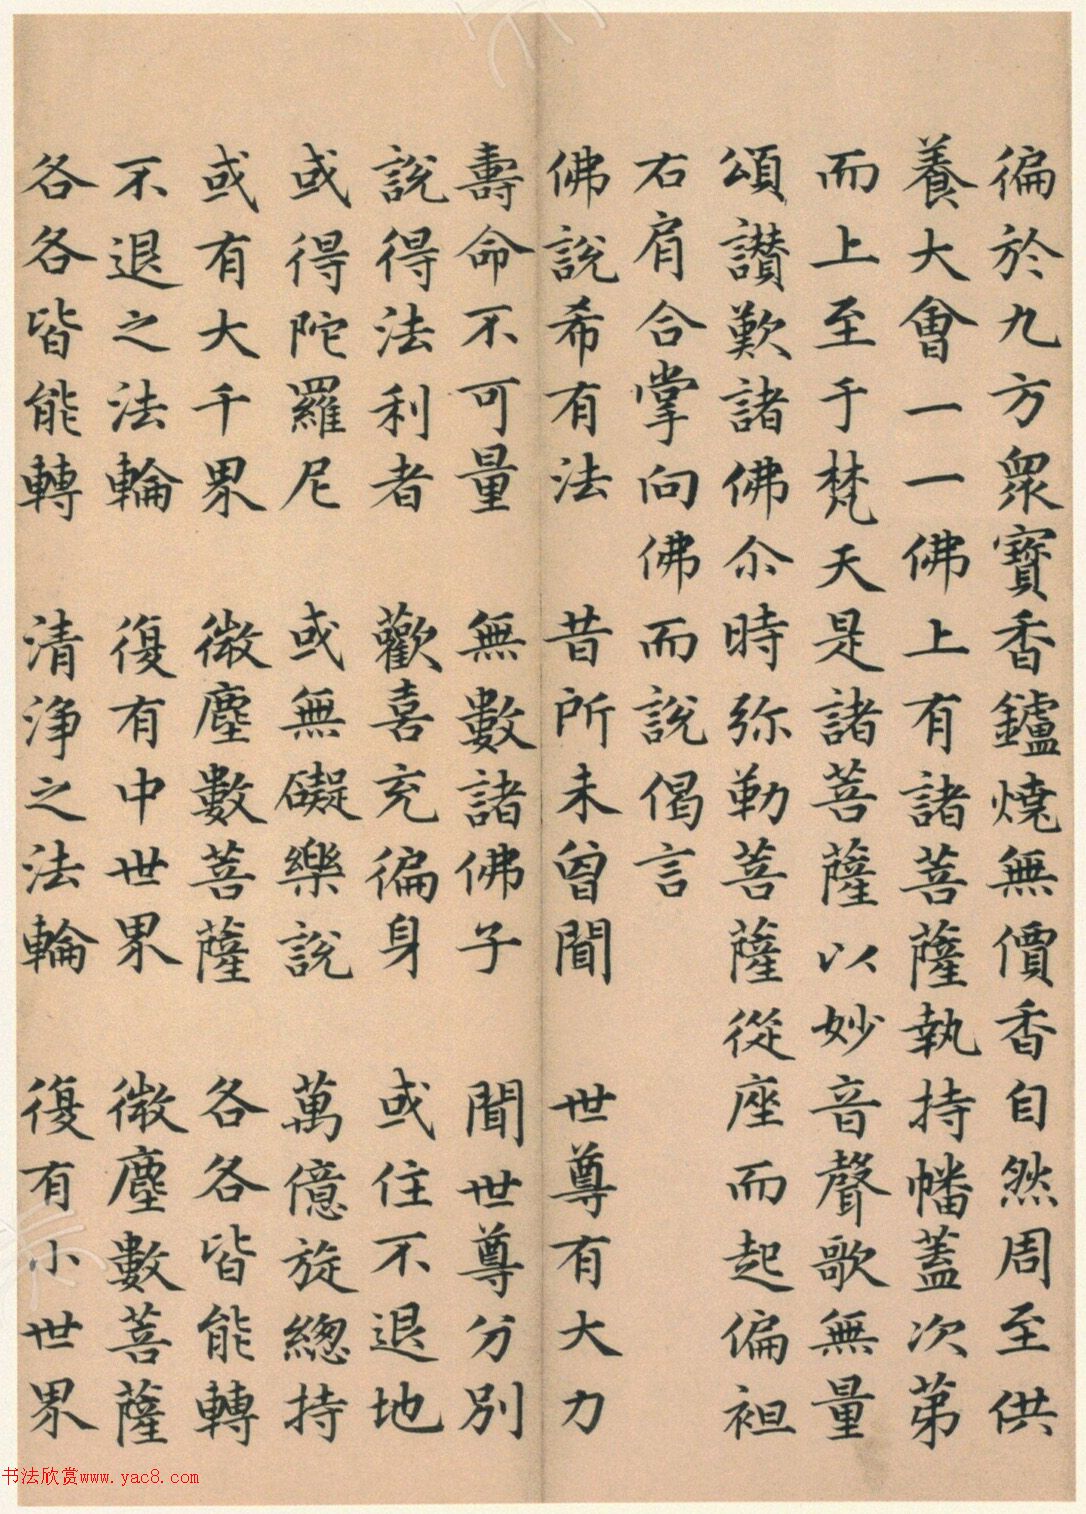 徧於九方眾寶香鑪燒無價香自然周至供
養大會一一佛上有諸菩薩執持幡蓋次第
而上至于梵天是諸菩薩以妙音聲歌無量
頌讃歎諸佛尒時弥勒菩薩從座而起偏袒
右肩合掌向佛而說偈言
佛說希有法　昔所未曾聞　世尊有大力
壽命不可量　無數諸佛子　聞世尊分別
說得法利者　歡喜充徧身　或住不退地
或得陀羅尼　或無礙樂說　萬億旋總持
或有大千界　微塵數菩薩　各各皆能轉
不退之法輪　復有中世界　微塵數菩薩
各各皆能轉　清淨之法輪　復有小世界
书法欣赏www.yac8.com